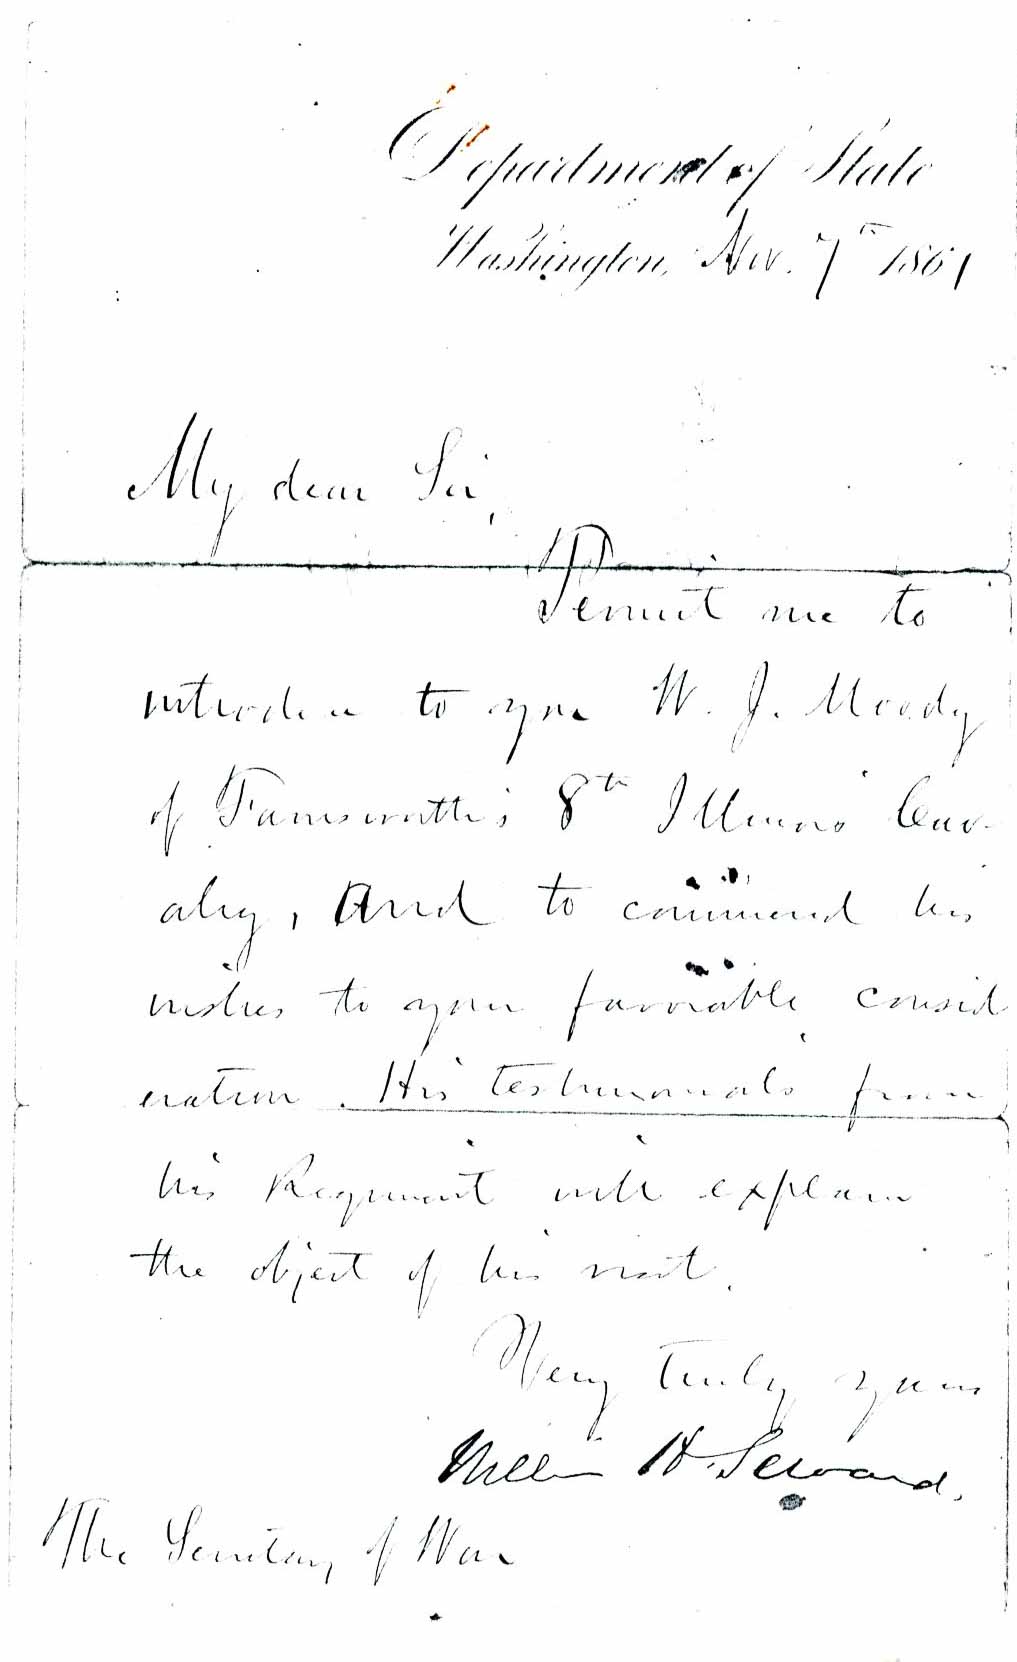 Department of State
Washington, Nov. 7th 1861
My dear Sir,
Permit me to
introduce to you W. J. Moody
of Farnsworth's 8th Illinois Cav-
alry, And to commend his
wishes to your favorable consid
eration. His testimonials from
his Regiment will explain
the object of his visit.
Very truly yours
William H. Seward.
The Secretary of War